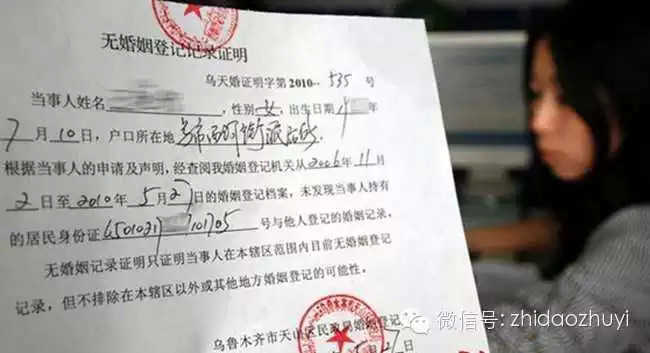 无婚姻登记记录证明
乌天婚证明字第2010--535号
当事人姓名 ,性别女,出生日期 年
7月10日,户口所在地
根据当事人的申请及声明,经查阅我婚姻登记机关从2006年11月
2日至2010年5月27日的婚姻登记档案,未发现当事人持有
的居民身份证 号与他人登记的婚姻记录。
无婚姻记录证明只证明当事人在本辖区范围内目前无婚姻登记
记录,但不排除在本辖区以外或其他地方婚姻登记的可能性。
乌鲁木齐市天山区民政局婚姻登记
27日
微信号: zhidaozhuyi